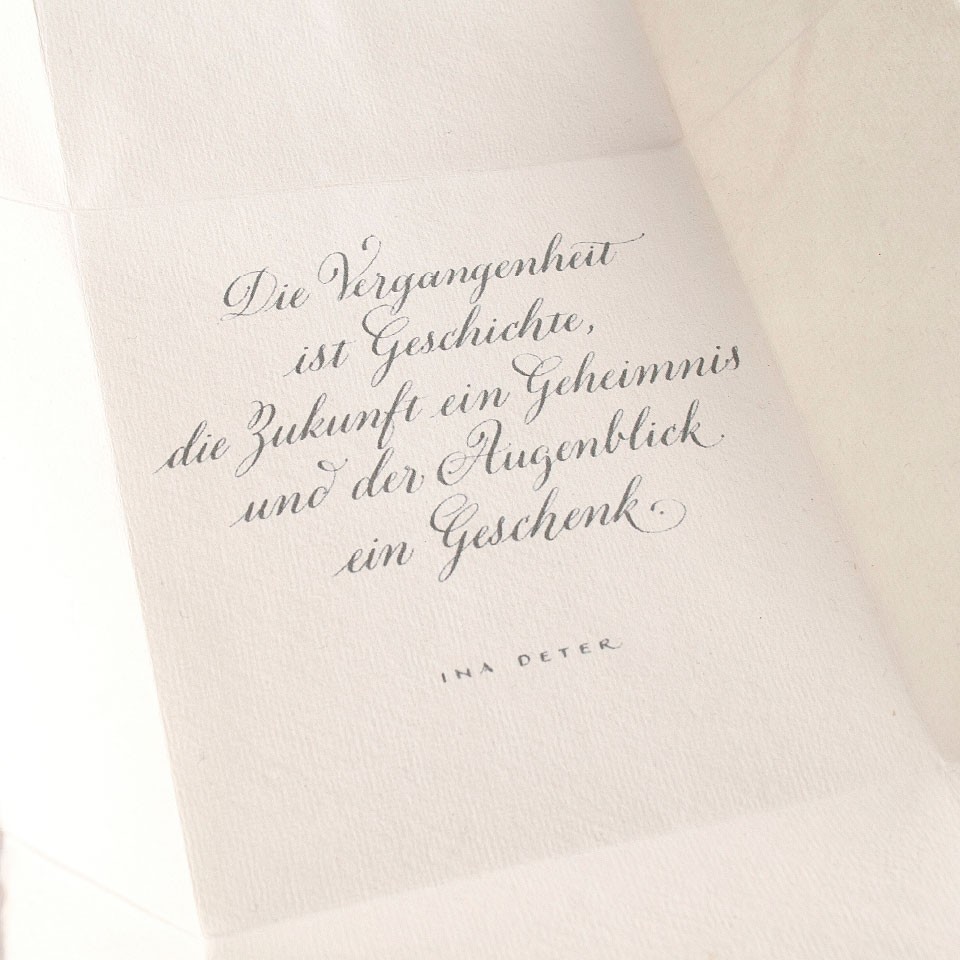 Die Vergangenheit
ist Geschichte,
die Zukunft ein Geheimnis
und der Augenblick
ein Geschenk.
INA DETER